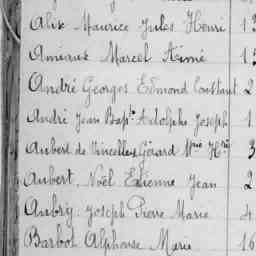 Alix Maurice Jules Henri 1
Amiaux Marcel Aimé 1
André Georges Edmond Constant 2
André Jean Bapte Adolphe Joseph 1
Aubert de Vincelles Gérard Mie Hri 3
Aubert, Noël Etienne Jean 2
Aubry Joseph Pierre Marie 4
Barbot Alphonse Marie 16